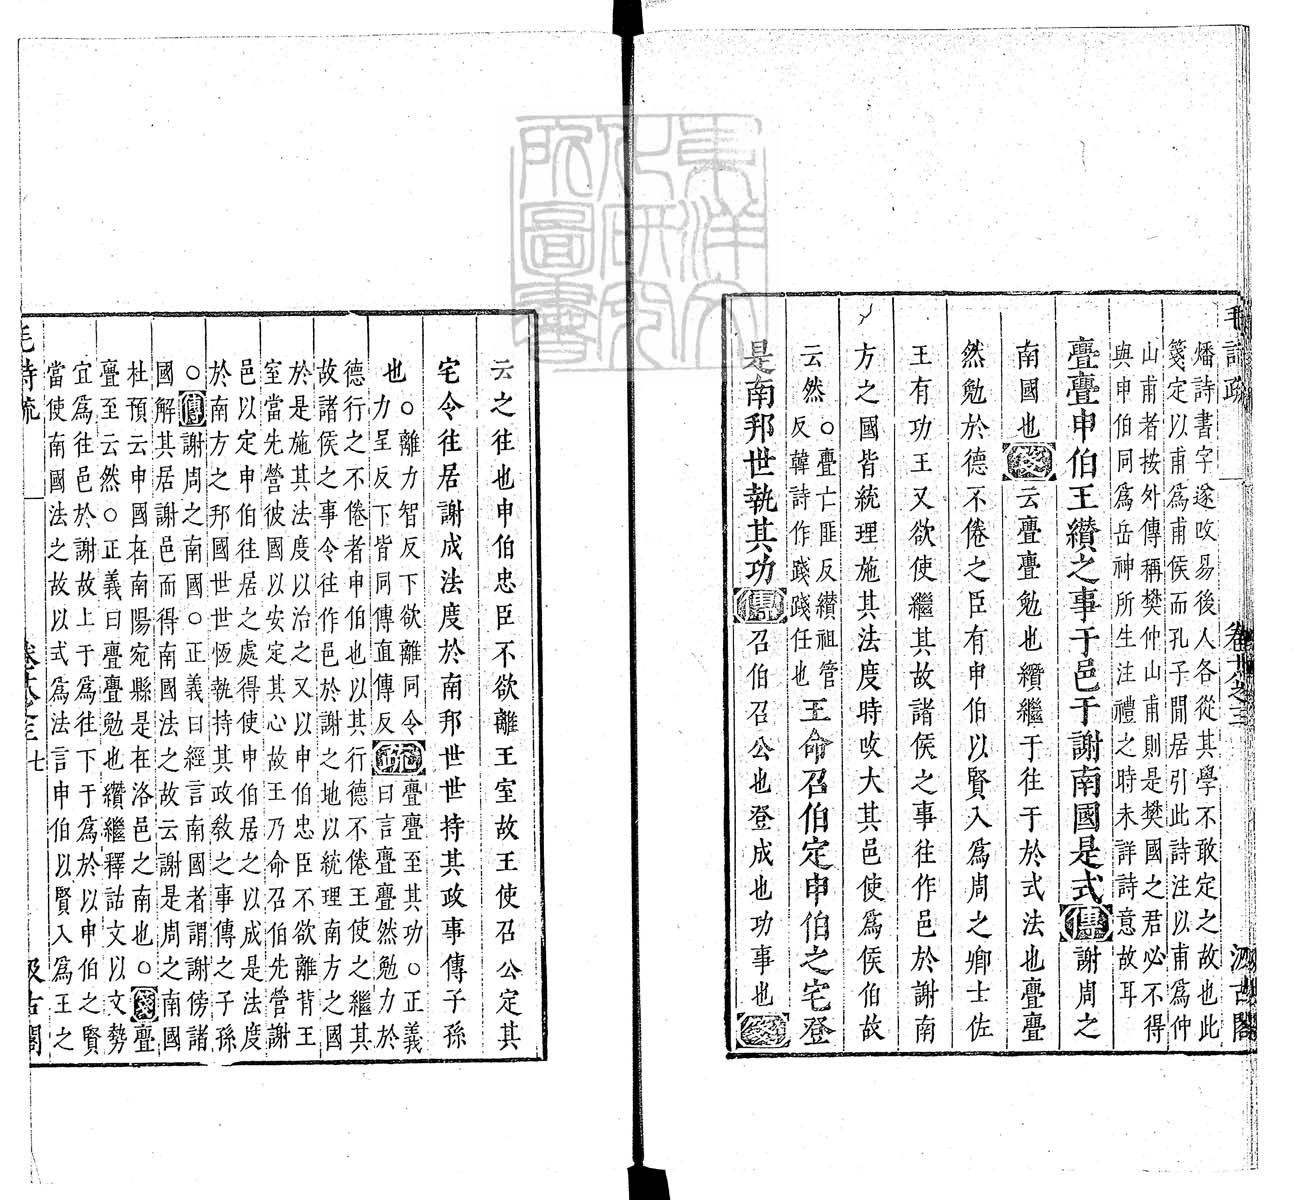 毛詩疏 卷十八之三 汲古閣
燔詩書字遂改易後人各從其學不敢定之故也此
箋定以甫爲甫侯而孔子閒居引此詩注以甫爲仲
山甫者按外傳稱樊仲山甫則是樊國之君必不得
與申伯同爲岳神所生注禮之時未詳詩意故耳
亹亹申伯王纘之事于邑于謝南國是式傳謝周之
南國也箋云亹亹勉也纘繼于往于於式法也亹亹
然勉於德不倦之臣有申伯以賢入爲周之卿士佐
王有功王又欲使繼其故諸侯之事往作邑於謝南
方之國皆統理施其法度時改大其邑使爲侯伯故
云然○亹亡匪反纘祖管反韓詩作踐踐任也王命召伯定申伯之宅登
是南邦世執其功傳召伯召公也登成也功事也箋
云之往也申伯忠臣不欲離王室故王使召公定其
宅令往居謝成法度於南邦世世持其政事傳子孫
也○離力智反下欲離同令力呈反下皆同傳直傳反疏亹亹至其功○正義曰言亹亹然勉力於
德行之不倦者申伯也以其行德不倦王使之繼其
故諸侯之事令往作邑於謝之地以統理南方之國
於是施其法度以治之又以申伯忠臣不欲離背王
室當先營彼國以安定其心故王乃命召伯先營謝
邑以定申伯往居之處得使申伯居之以成是法度
於南方之邦國世世恆執持其政敎之事傳之子孫
○傳謝周之南國○正義曰經言南國者謂謝傍諸
國解其居謝邑而得南國法之故云謝是周之南國
杜預云申國在南陽宛縣是在洛邑之南也○箋亹
亹至云然○正義曰亹亹勉也纘繼釋詁文以文勢
宜爲往邑於謝故上于爲往下于爲於以申伯之賢
當使南國法之故以式爲法言申伯以賢入爲王之
毛詩疏 卷十八之三 七 汲古閣
東洋文化研究所圖書